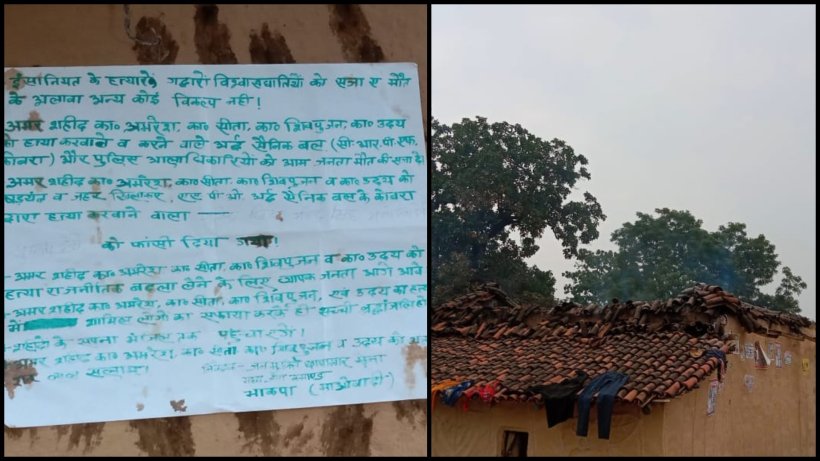 इंसानियत के हत्यारों गद्दारों विश्वासघातियों को सजा ए मौत
के अलावा अन्य कोई विकल्प नहीं!
अमर शहीद का० अमरेश, का० सीता, का० शिवपुजन, का० उदय
को हत्या करवाने व करने वाले अर्द्ध सैनिक बल (सी.आर.पी.एफ.
कोबरा) और पुलिस आलाधिकारियों को आम जनता मौत की सजा दें।
अमर शहीद का० अमरेश, का० सीता, का० शिवपुजन व का० उदय को
षडयंत्र व जहर खिलाकर, एस पी ओ अर्द्ध सैनिक बल के कोबरा
द्वारा हत्या करवाने वाला
को फांसी दिया गया!
- अमर शहीद का० अमरेश, का० सीता, का० शिवपुजन व का० उदय को
हत्या राजनीतिक बदला लेने के लिए व्यापक जनता आगे आवें
- अमर शहीद का० अमरेश, का० सीता, का० शिवपुजन, एवं उदय का हत्या
में शामिल लोगों का सफाया करके ही सच्ची श्रद्धांजलि हो
- शहीदों के सपना मंजिल तक पहुंचाएंगे!
अमर शहीद का० अमरेश, का० सीता का० शिवपुजन व उदय को
लाल सलाम!
भाकपा (माओवादी)